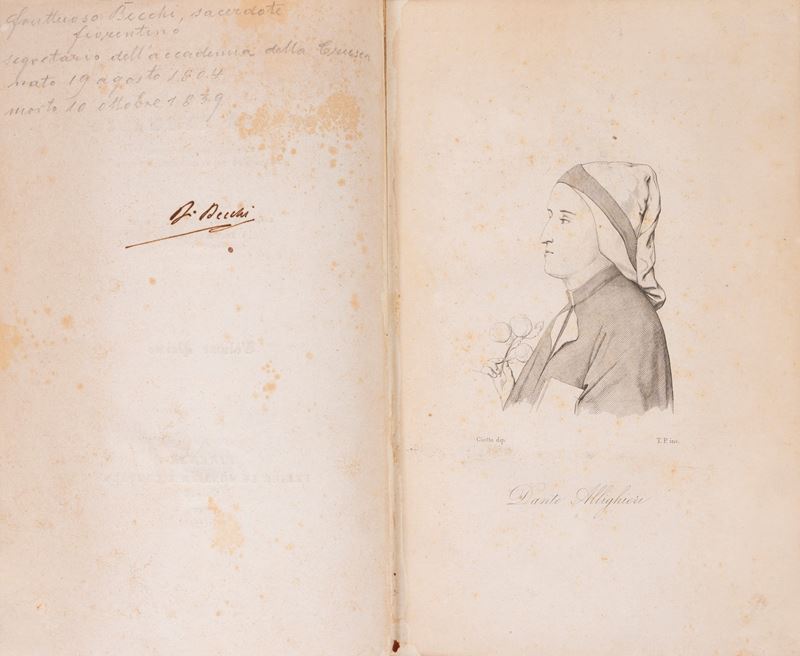 Fruttuoso Becchi, sacerdote
fiorentino
segretario dell'accademia della Crusca
nato 19 agosto 1804
morto 10 ottobre 1839
F. Becchi
Giotto dip.
T. P. inc.
Dante Allighieri